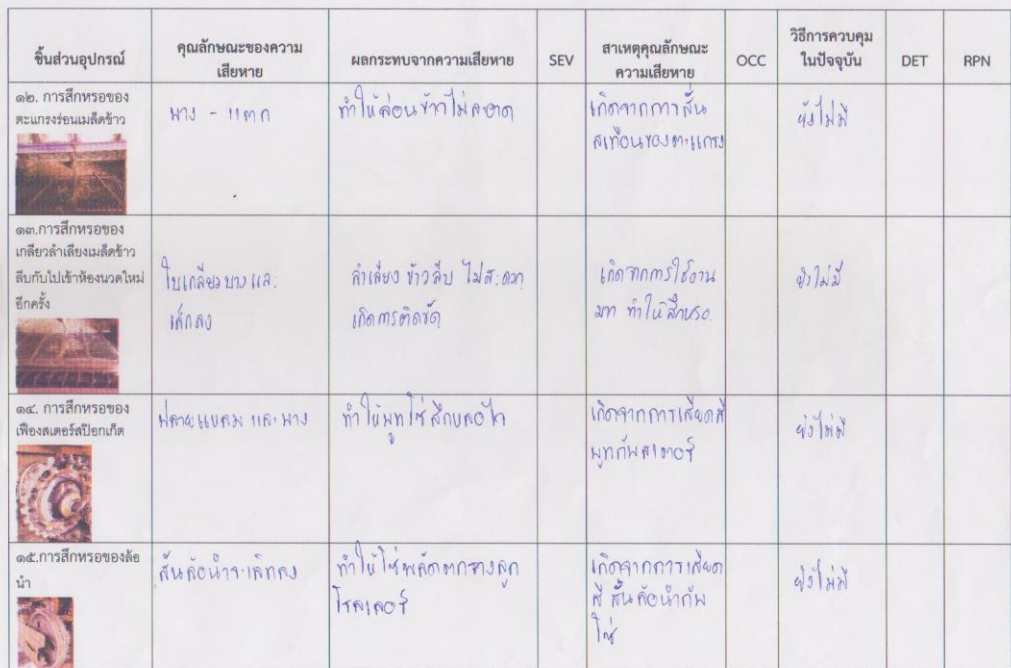 ชิ้นส่วนอุปกรณ์
คุณลักษณะของความ
เสียหาย
ผลกระทบจากความเสียหาย
SEV
สาเหตุคุณลักษณะ
ความเสียหาย
OCC
วิธีการควบคุม
ในปัจจุบัน
DET
RPN
๑๒. การสึกหรอของ
ตะแกรงร่อนเมล็ดข้าว
บาง - แตก
ทำให้ล่อนข้าวไม่สะอาด
เกิดจากการสั่น
สเทือนของตะแกรง
ยังไม่มี
๑๓.การสึกหรอของ
เกลียวลำเลียงเมล็ดข้าว
ลีบกับไปเข้าห้องนวดใหม่
อีกครั้ง
ใบเกลียวบางและ
เล็กลง
ลำเลียงข้าวลีบ ไม่สะดวก
เกิดการติดขัด
เกิดจากการใช้งาน
มาก ทำให้สึกหรอ
ยังไม่มี
๑๔. การสึกหรอของ
เฟืองสเตอร์สป๊อกเก็ต
แหลม และบาง
ทำให้บูทโซ่สึก
เกิดจากการเสียดสี
บูทกับสเตอร์
ยังไม่มี
๑๕.การสึกหรอของล้อ
นำ
สันล้อนำจะเล็กลง
ทำให้โซ่พลัดตกรางลูก
โรลเลอร์
เกิดจากการเสียด
สี สันล้อนำกับ
โซ่
ยังไม่มี